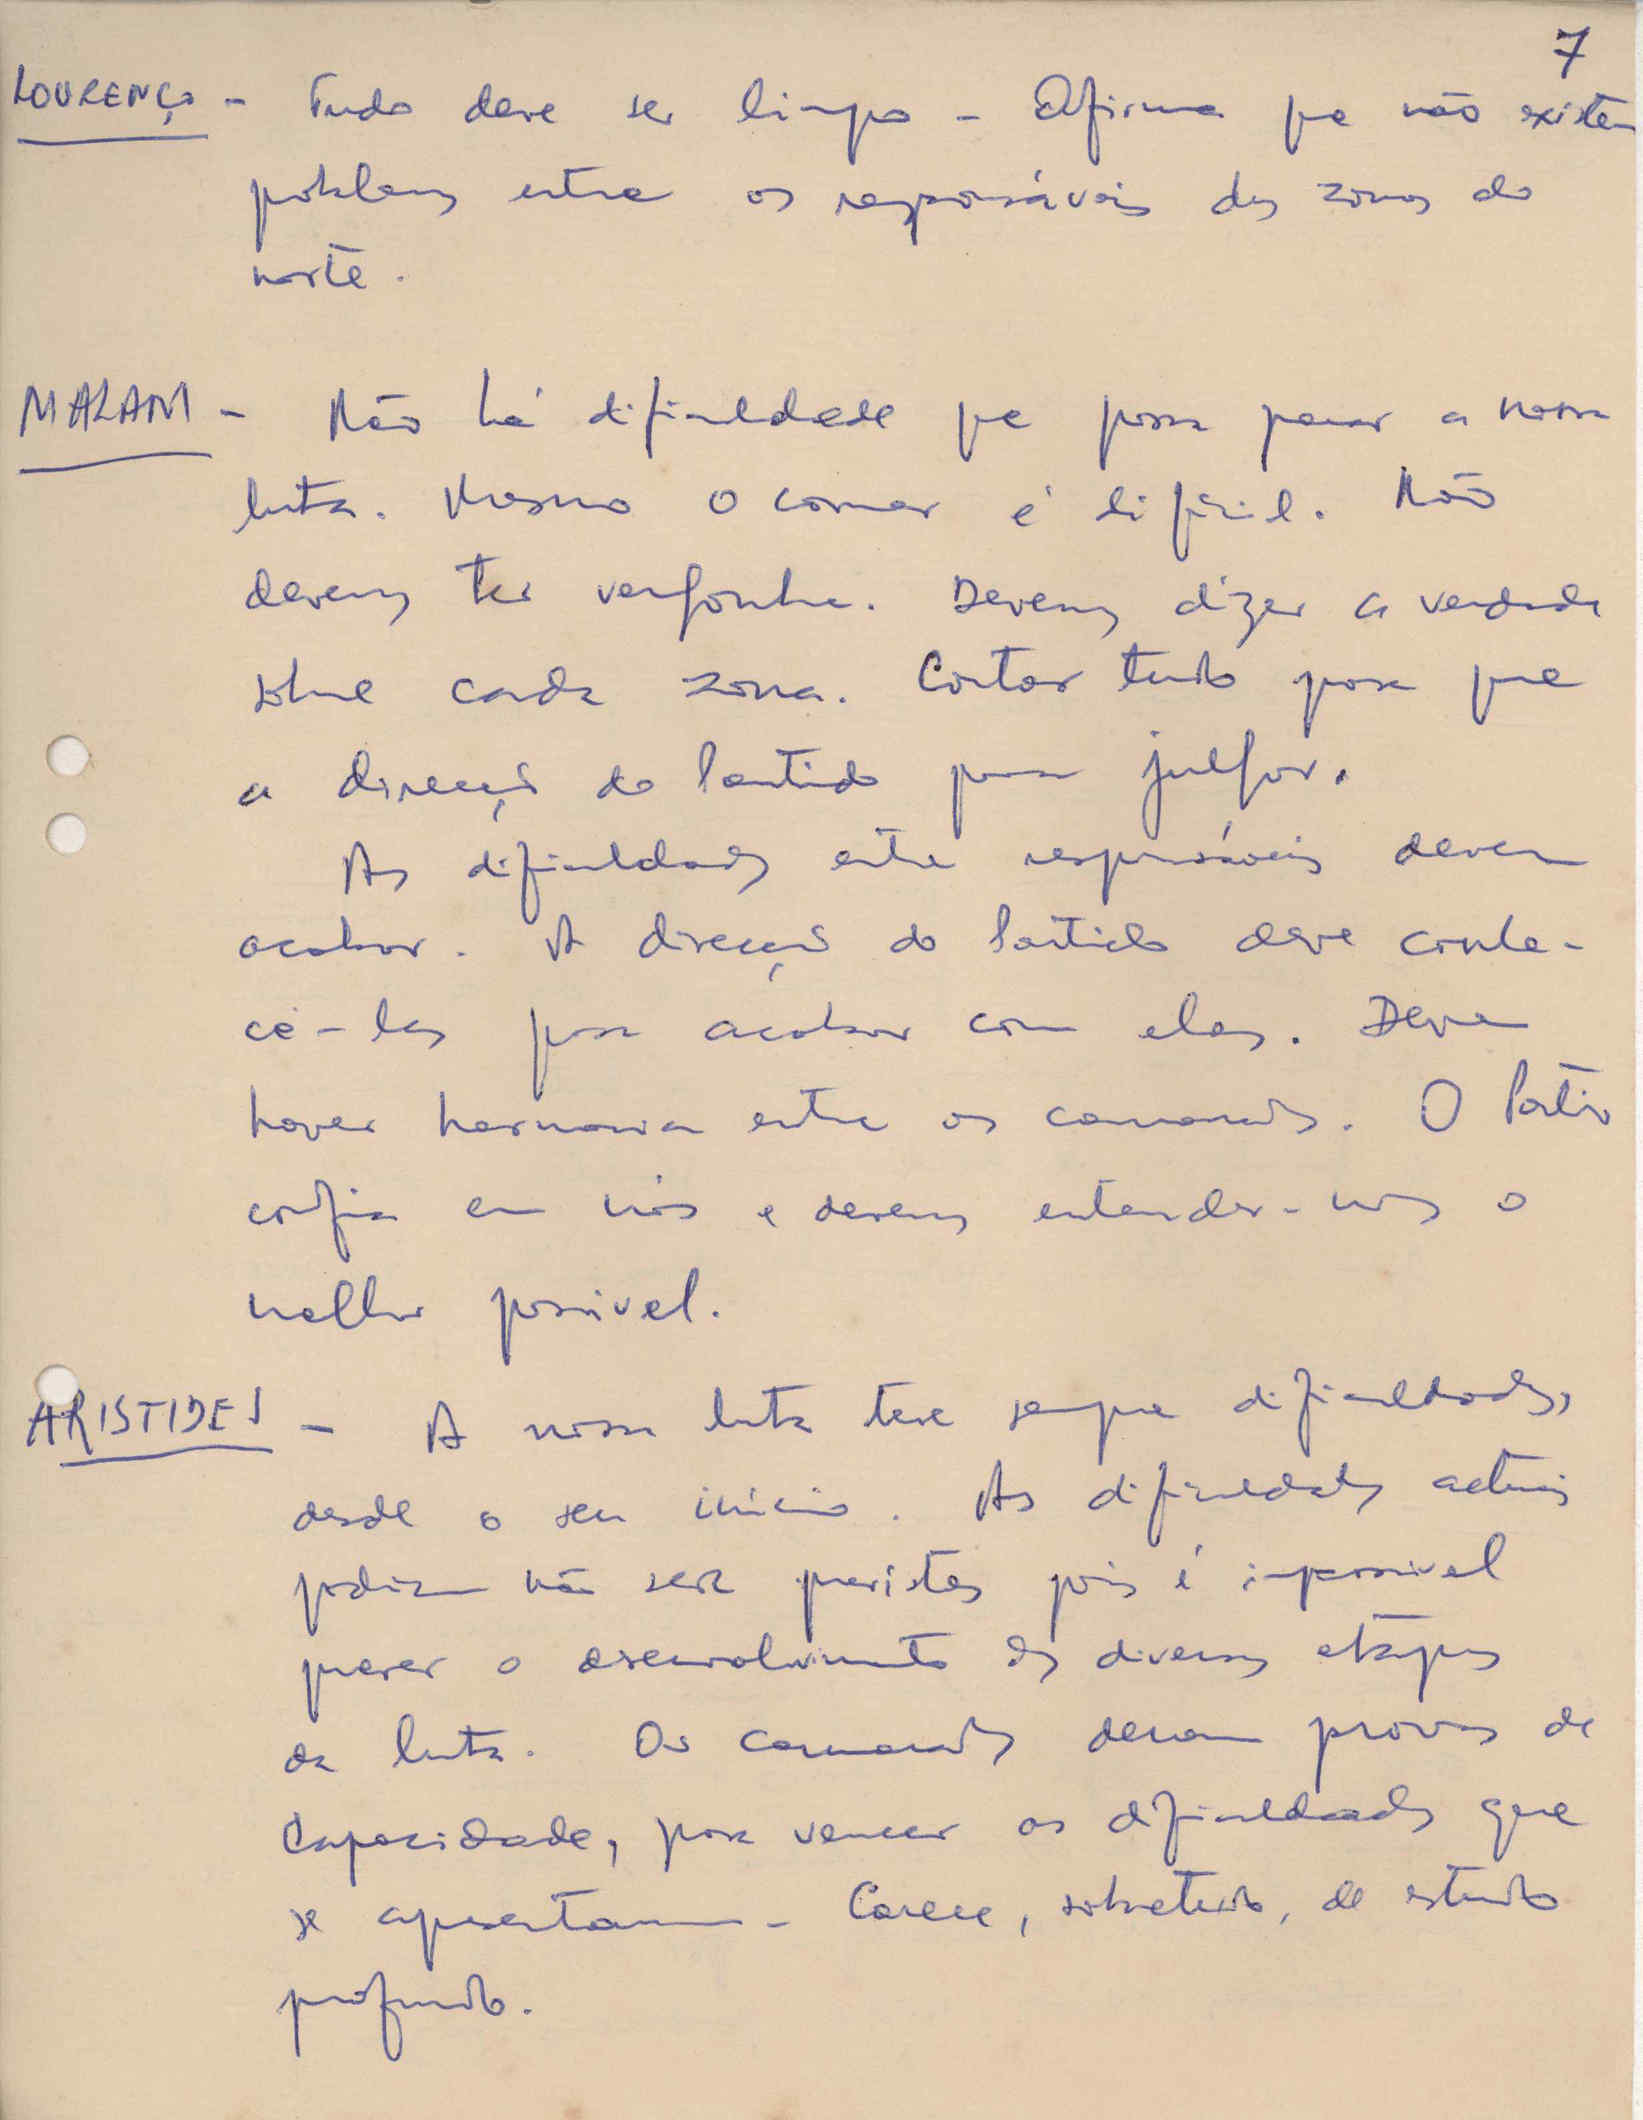 7
LOURENÇO - Tudo deve ser limpo - Afirma que não existem
problemas entre os responsáveis das zonas do
norte.
MALAM - Não há dificuldade que possa parar a nossa
luta. Mesmo o comer é difícil. Não
devemos ter vergonha. Devemos dizer a verdade
sobre cada zona. Contar tudo para que
a direcção do Partido possa julgar.
As dificuldades entre responsáveis devem
acabar. A direcção do Partido deve conhe-
cê-las para acabar com elas. Deve
haver harmonia entre os camaradas. O Partido
confia em nós e devemos entender-nos o
melhor possível.
ARISTIDES - A nossa luta teve sempre dificuldades,
desde o seu início. As dificuldades actuais
podiam não ser previstas pois é impossível
prever o desenvolvimento das diversas etapas
da luta. Os camaradas deram provas de
capacidade, para vencer as dificuldades que
se apresentam - Carece, sobretudo, de estudo
profundo.